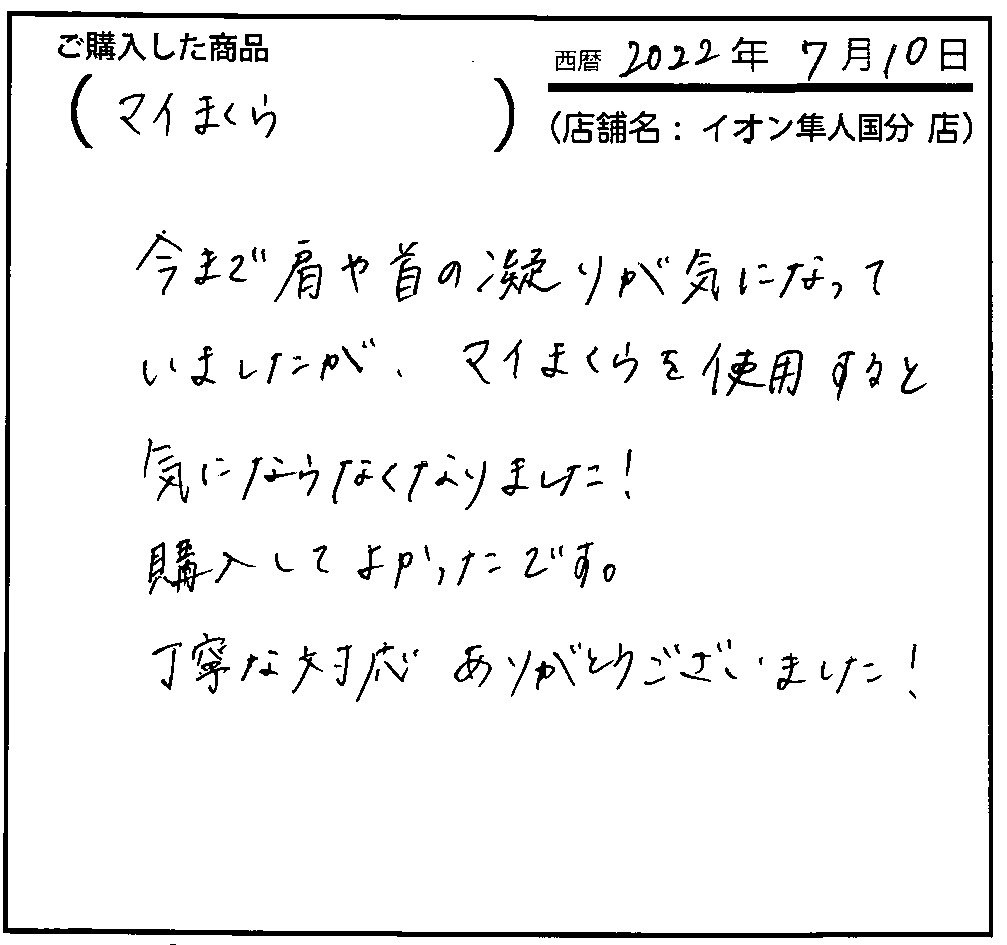 ご購入した商品
(マイまくら)
西暦 2022年 7月10日
(店舗名：イオン隼人国分 店)
今まで肩や首の凝りが気になって
いましたが、マイまくらを使用すると
気にならなくなりました！
購入してよかったです。
丁寧な対応 ありがとうございました！